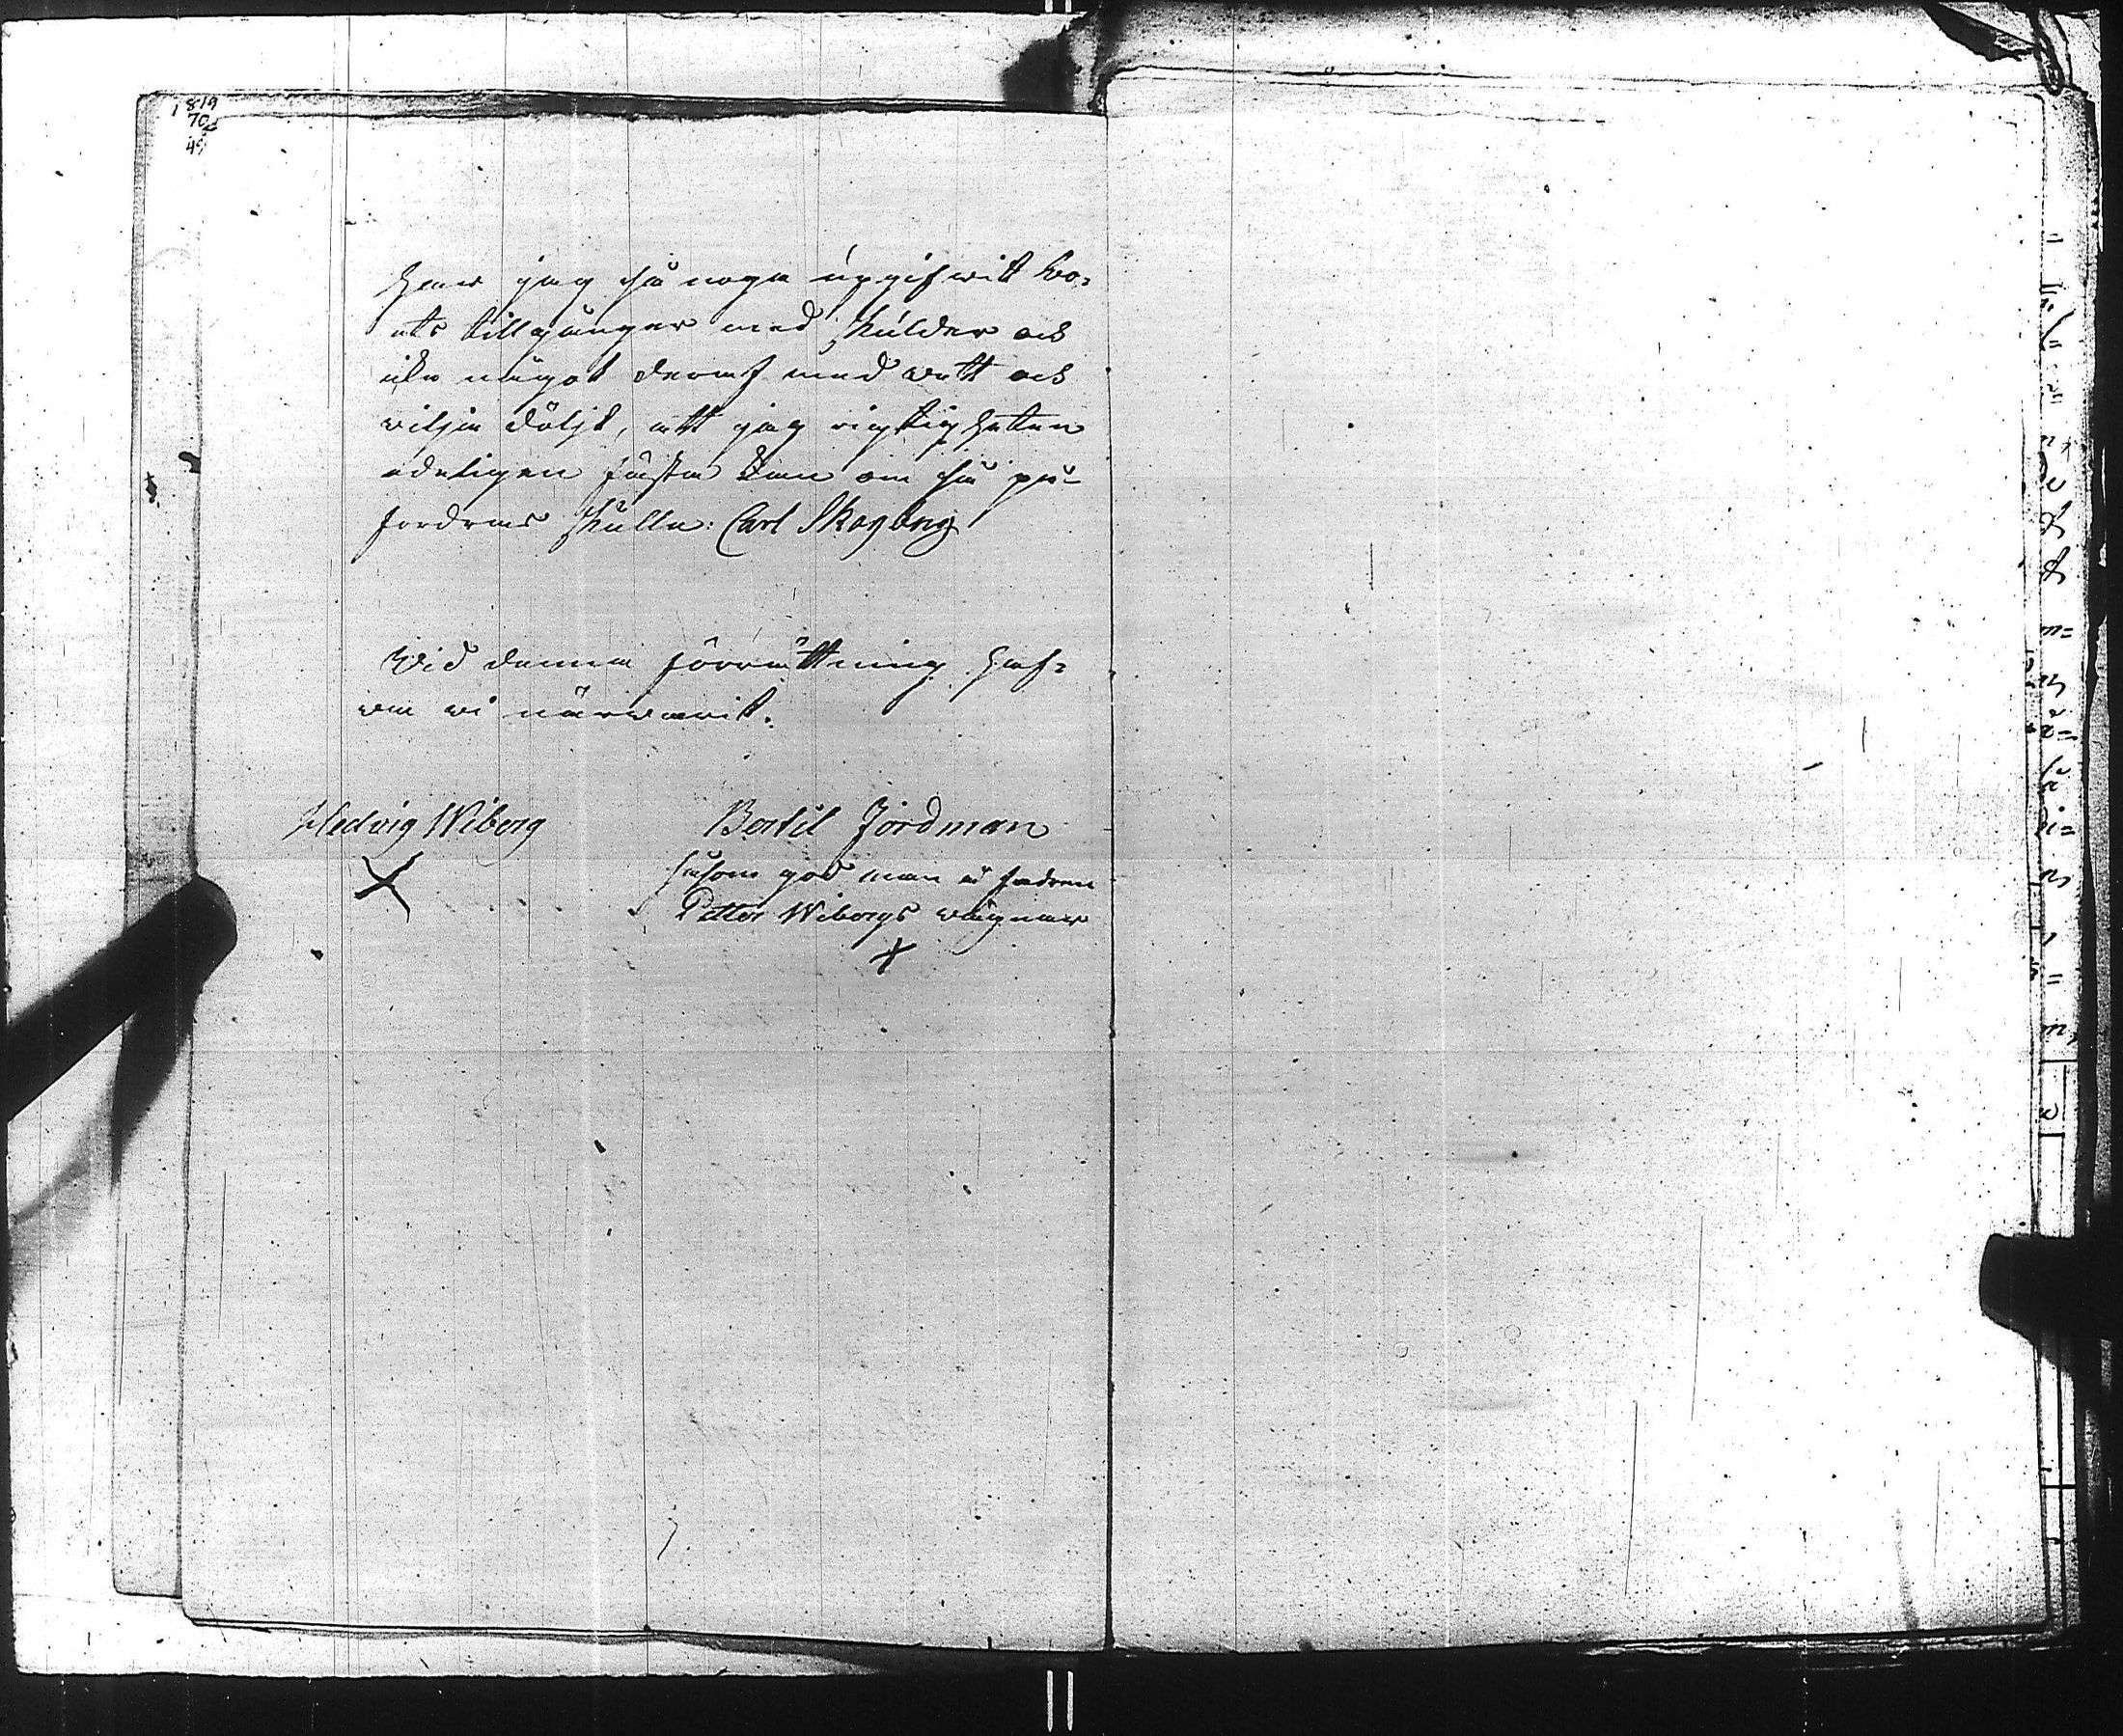 1819
70
49
Har jag så noga upgifwit bo-
ets tillgångar med skulder och
icke något deraf med vett och
vilja döljt, att jag rigtigheten
edeligen fästa kan om så på-
fordras skulle: Carl Skogberg
Vid denna förrättning haf-
wa vi närwarit.
Hedvig Wiborg
Bertil Jordman
såsom god man å fadren
Petter Wiborgs vägnar